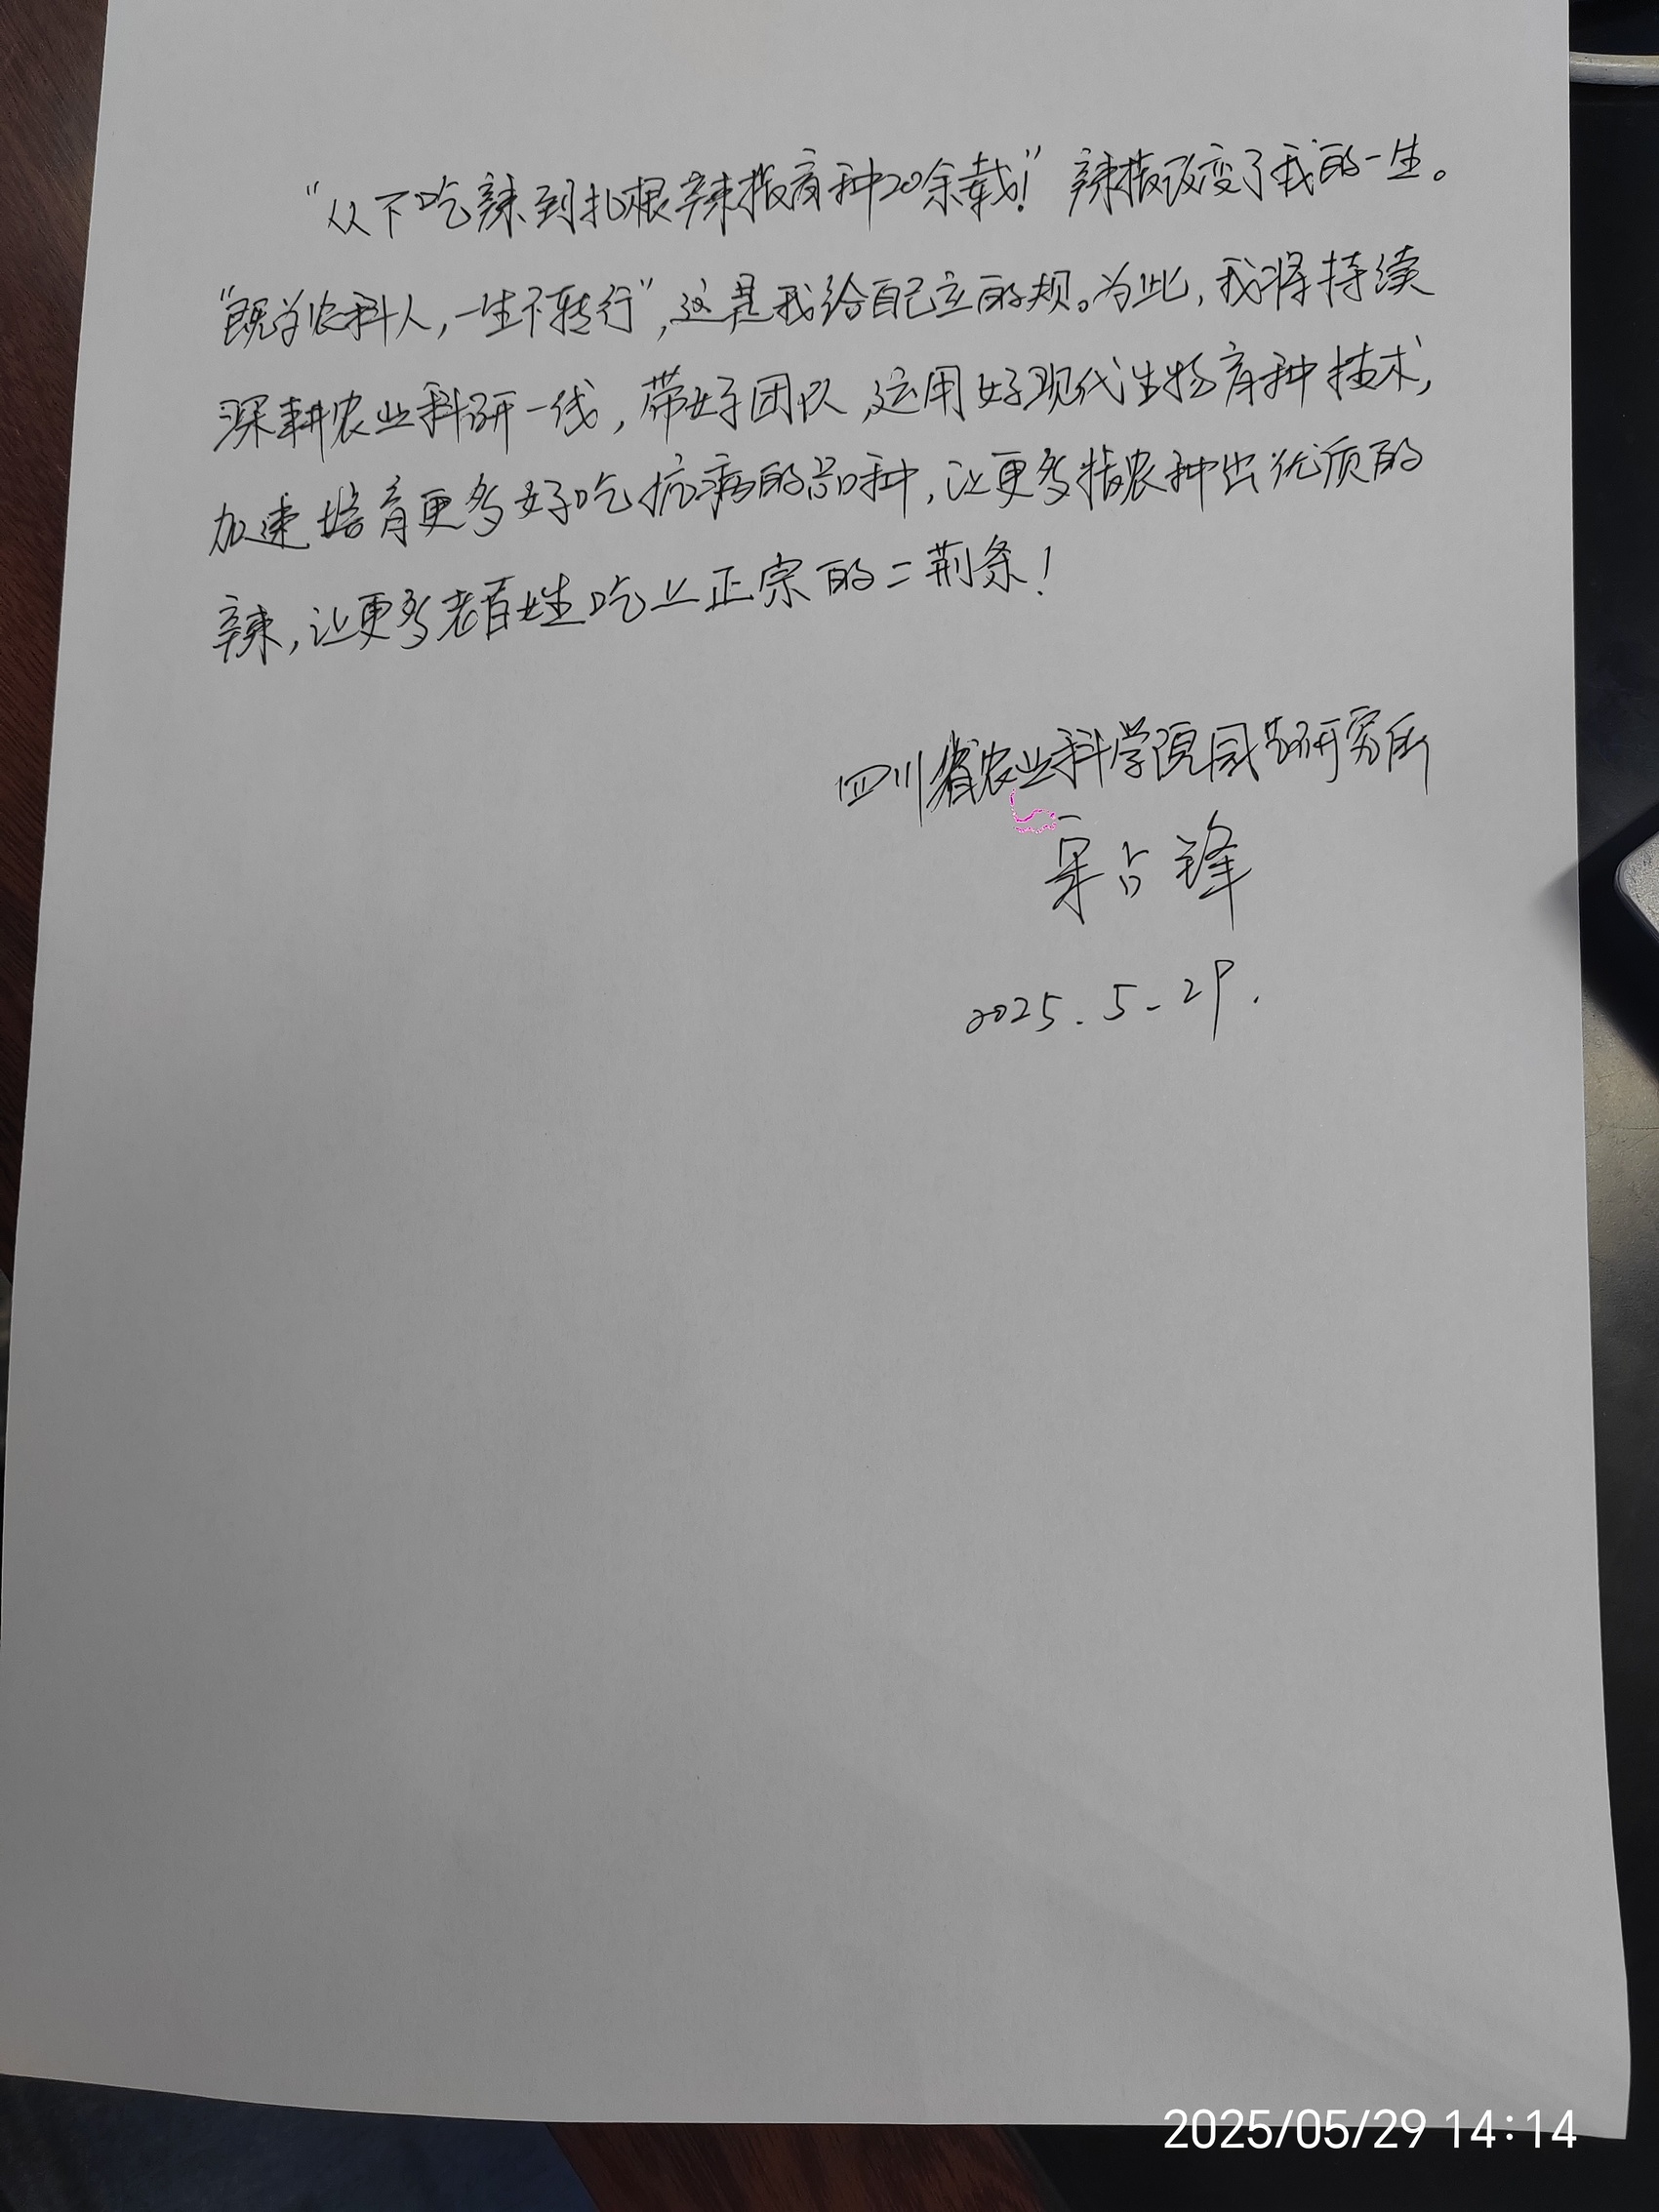 “从不吃辣到扎根辣椒育种20余载!” 辣椒改变了我的一生。
“既为农科人,一生不转行”,这是我给自己立的规。为此,我将持续
深耕农业科研一线,带好团队,运用好现代生物育种技术,
加速培育更多好吃抗病的品种,让更多椒农种出优质的
辣,让更多老百姓吃上正宗的二荆条!
四川省农业科学院园艺研究所
宋占锋
2025.5.29.
2025/05/29 14:14